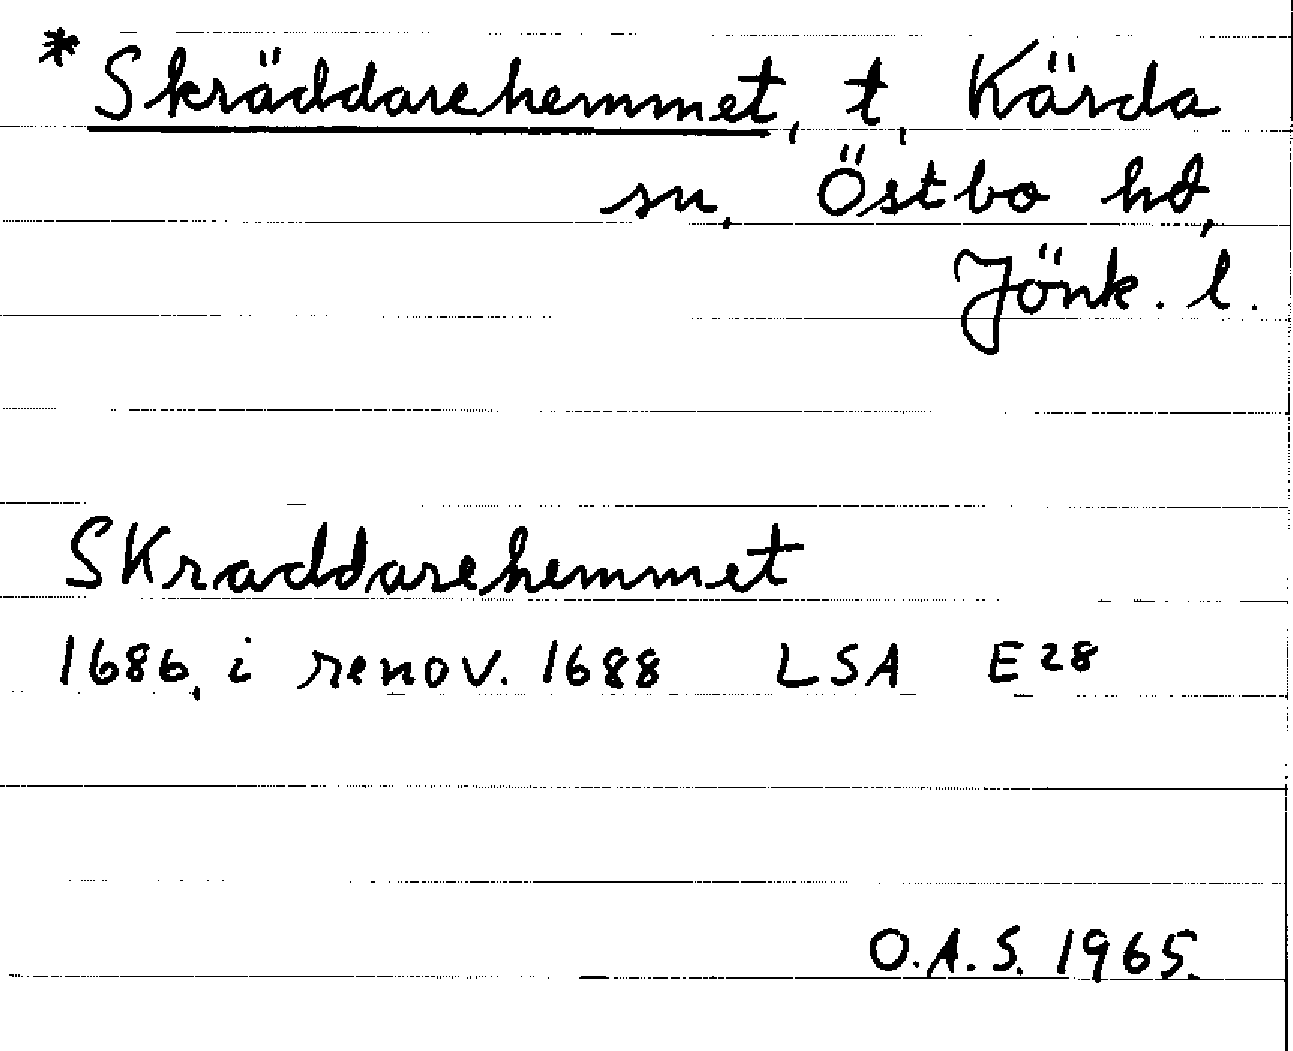 *Skräddarehemmet, t, Kärda
sn, Östbo hd,
Jönk. l.
SKraddarehemmet
1686, i renov. 1688 LSA E28
O.A.S. 1965.